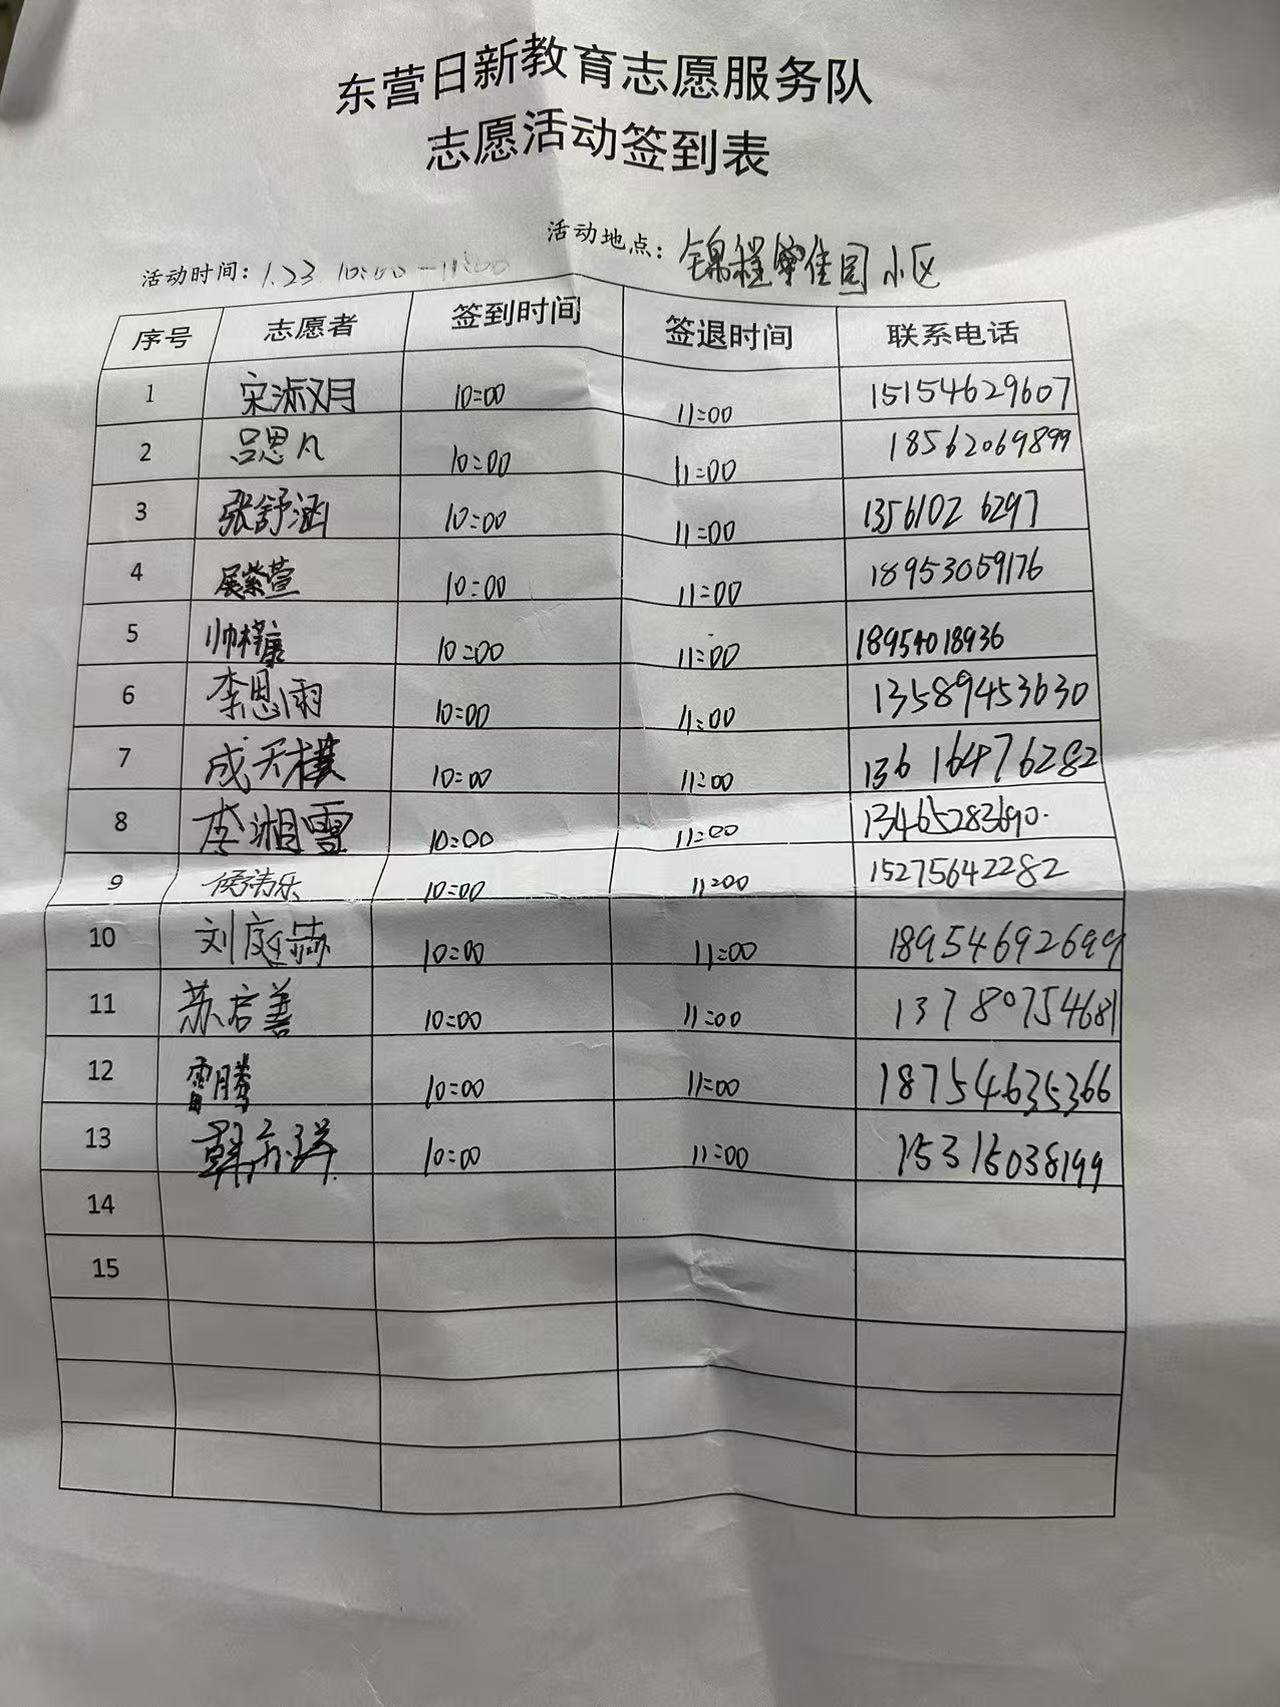 东营日新教育志愿服务队
志愿活动签到表
活动时间：1.23 10:00-11:00 活动地点：锦程佳园小区
序号 志愿者 签到时间 签退时间 联系电话
1 宋淑玥 10:00 11:00 15154629607
2 吕思凡 10:00 11:00 18562069899
3 张舒涵 10:00 11:00 13561026297
4 展紫萱 10:00 11:00 18953059176
5 帅梓康 10:00 11:00 18954018936
6 李思雨 10:00 11:00 13589453630
7 成天樸 10:00 11:00 13616476282
8 李湘雪 10:00 11:00 13465283690.
9 10:00 11:00 15275642282
10 刘庭赫 10:00 11:00 18954692699
11 苏启善 10:00 11:00 13780754681
12 雷腾 10:00 11:00 18754635366
13 10:00 11:00 15316038199
14
15